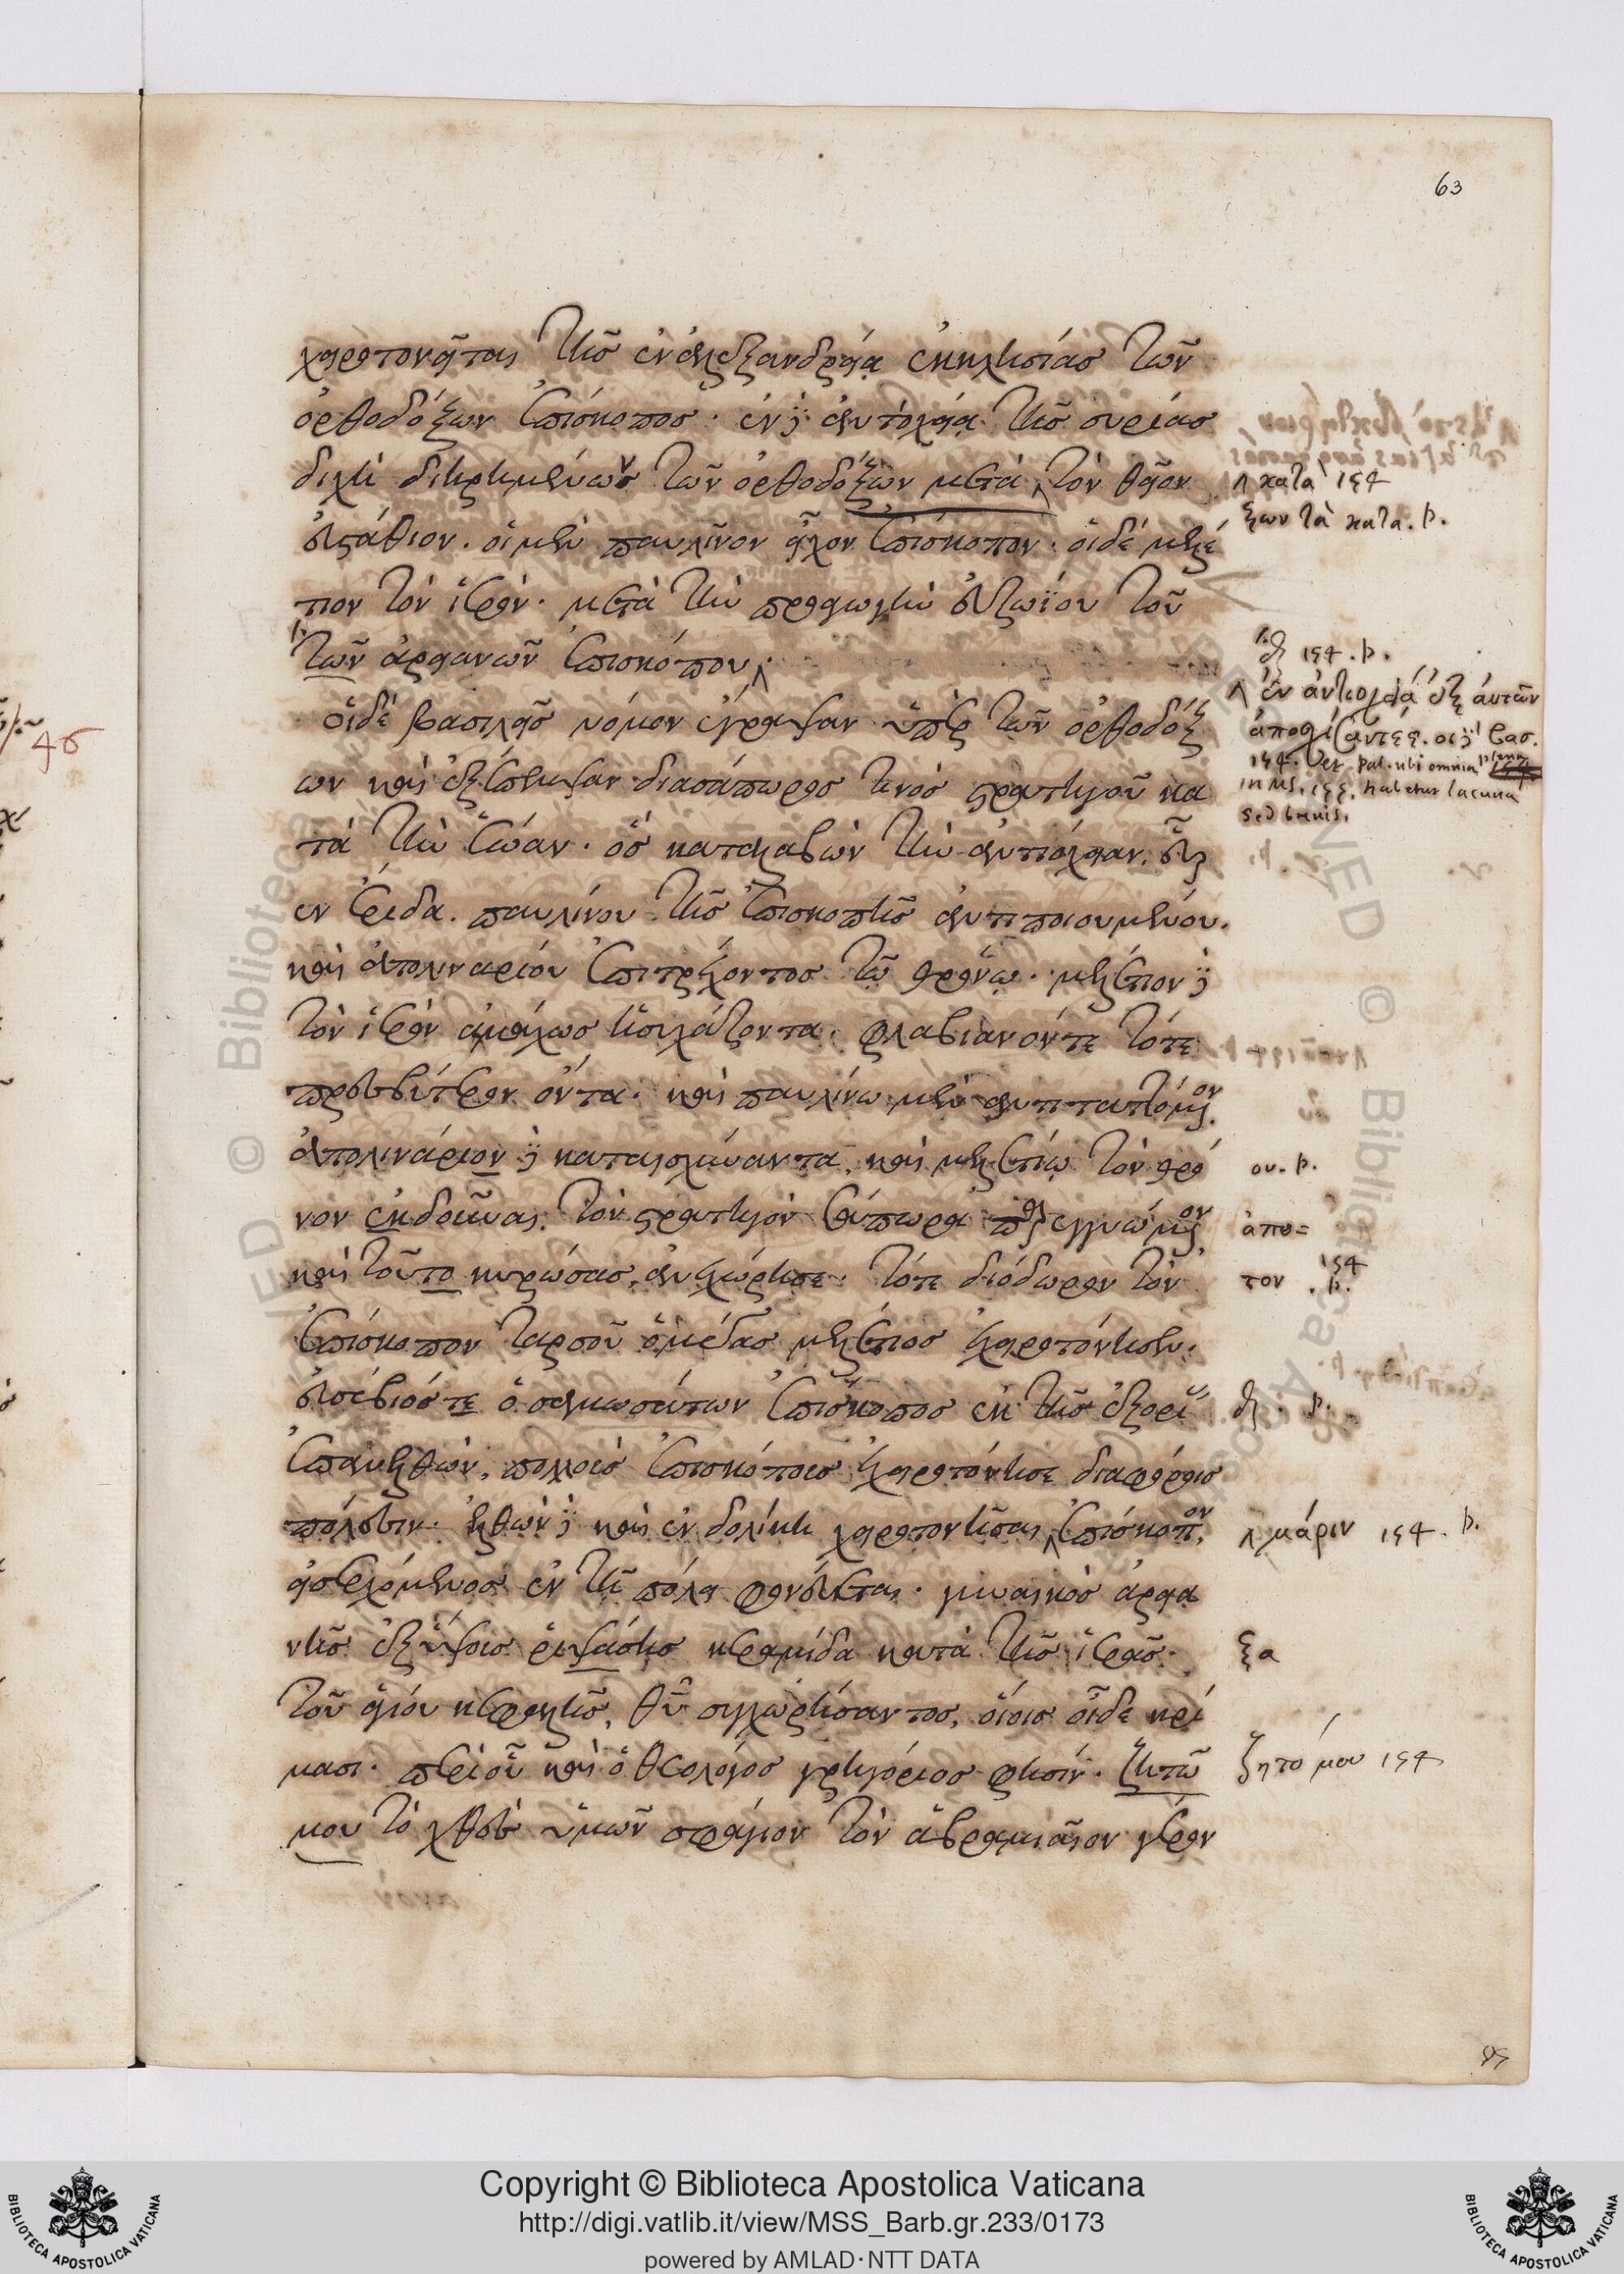 63
χειροτονεῖται τῆς ἐν ἀλεξανδρείᾳ ἐκκλησίας τῶν
ὀρθοδόξων ἐπίσκοπος. ἐν δὲ ἀντιοχείᾳ τῆς συρίας
διχῆ διῃρημένων τῶν ὀρθοδόξων μετὰ τὸν θεῖον
εὐστάθιον. οἱ μὲν παυλῖνον εἶχον ἐπίσκοπον. οἱ δὲ μελέ
τιον τὸν ἱερόν. μετὰ τὴν προαγωγὴν εὐζωΐου τοῦ
τῶν ἀρειανῶν ἐπισκόπου.
οἱ δὲ βασιλεῖς νόμον ἔγραψαν ὑπὲρ τῶν ὀρθοδόξ
ων καὶ ἐξέπεμψαν διὰ σάπωρος τινὸς στρατηγοῦ κα
τὰ τὴν ἑῴαν. ὃς καταλαβὼν τὴν ἀντιόχειαν, εὗρ
εν ἔριδα. παυλίνου τῆς ἐπισκοπῆς ἀντιποιουμένου.
καὶ ἀπολιναρίου ἐπιτρέχοντος τῷ θρόνῳ. μελέτιον δὲ
τὸν ἱερὸν ἀμάχως ἡσυχάζοντα. φλαβιανόν τε τότε
πρεσβύτερον ὄντα. καὶ παυλίνω μὲν ἀντιταττόμενον.
ἀπολινάριον δὲ καταισχύναντα, καὶ μελετίῳ τὸν θρό
νον ἐκδοῦναι. τὸν στρατηγὸν σάπωρα
καὶ τοῦτο κυρώσας, ἀνεχώρησε. τότε διόδωρον τὸν
ἐπίσκοπον ταρσοῦ ὁ μέγας μελέτιος ἐχειροτόνησεν.
εὐσέβιός τε ὁ σαμωσάτων ἐπίσκοπος ἐκ τῆς ἐξορί
ἐπανελθὼν, πολλοὶς ἐπισκόποις ἐχειροτόνησε διαφόροις
πόλεσιν. ἐλθὼν δὲ καὶ ἐν δολίκη χειροτονῆσαι ἐπίσκοπον,
εἰσερχόμενος ἐν τῇ πόλει φονεύεται. γυναικὸς ἀρεια
νῆς ἐξ ὕψους ῥιψάσης κεραμίδα κατὰ τῆς ἱερᾶς
τοῦ ἁγίου κεφαλῆς, θῦ συγχωρήσαντος, οἵοις οἶδε κρί
μασι. περὶ οὗ καὶ ὁ θεολόγος γρηγόριος φησίν. ζητῶ
μου τὸ χθὲς ὑμῶν σφάγιον τὸν ἀβραμιαῖον γέρον
κατὰ 154
ξων τὰ κατα. p.
δὲ 154. p.
ἐν ἀντιοχείᾳ ἐξ αὐτῶν
οἱ δὲ βασ.
154. et pal. ubi omnia plena
in MS. 155. habetur lacuna
sed brevis.
ου. p.
ἀπο=
τον 154 . p.
δὲ . p.
μάριν 154. p.
ξα
ζητό μου 154
46
Copyright © Biblioteca Apostolica Vaticana
http://digi.vatlib.it/view/MSS_Barb.gr.233/0173
powered by AMLAD·NTT DATA
BIBLIOTECA APOSTOLICA VATICANA
BIBLIOTECA APOSTOLICA VATICANA